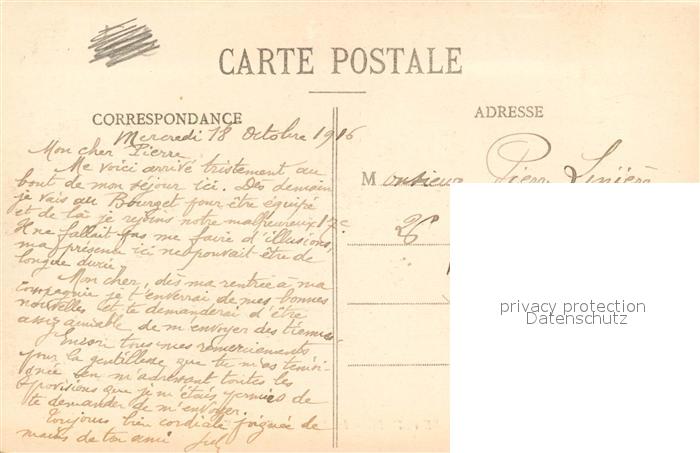 CARTE POSTALE
CORRESPONDANCE
ADRESSE
Mercredi 18 Octobre 1916
Mon cher Pierre
Me voici arrivé tristement au
bout de mon séjour ici. Dès demain
je vais au Bourget pour être équipé
et de là je rejoins notre malheureux 17e
Il ne fallait pas me faire d'illusions,
ma présence ici ne pouvait être de
longue durée.
Mon cher, dès ma rentrée à ma
Compagnie je t'enverrai de mes bonnes
nouvelles et te demanderai d'être
assez aimable de m'envoyer des tiennes
Encore tous mes remerciements
pour la gentillesse que tu m'as témoi-
gnée en m'adressant toutes les
provisions que je m'étais permis de
te demander de m'envoyer.
Toujours bien cordiale poignée de
mains de ton ami
Monsieur Pierre
26
privacy protection
Datenschutz